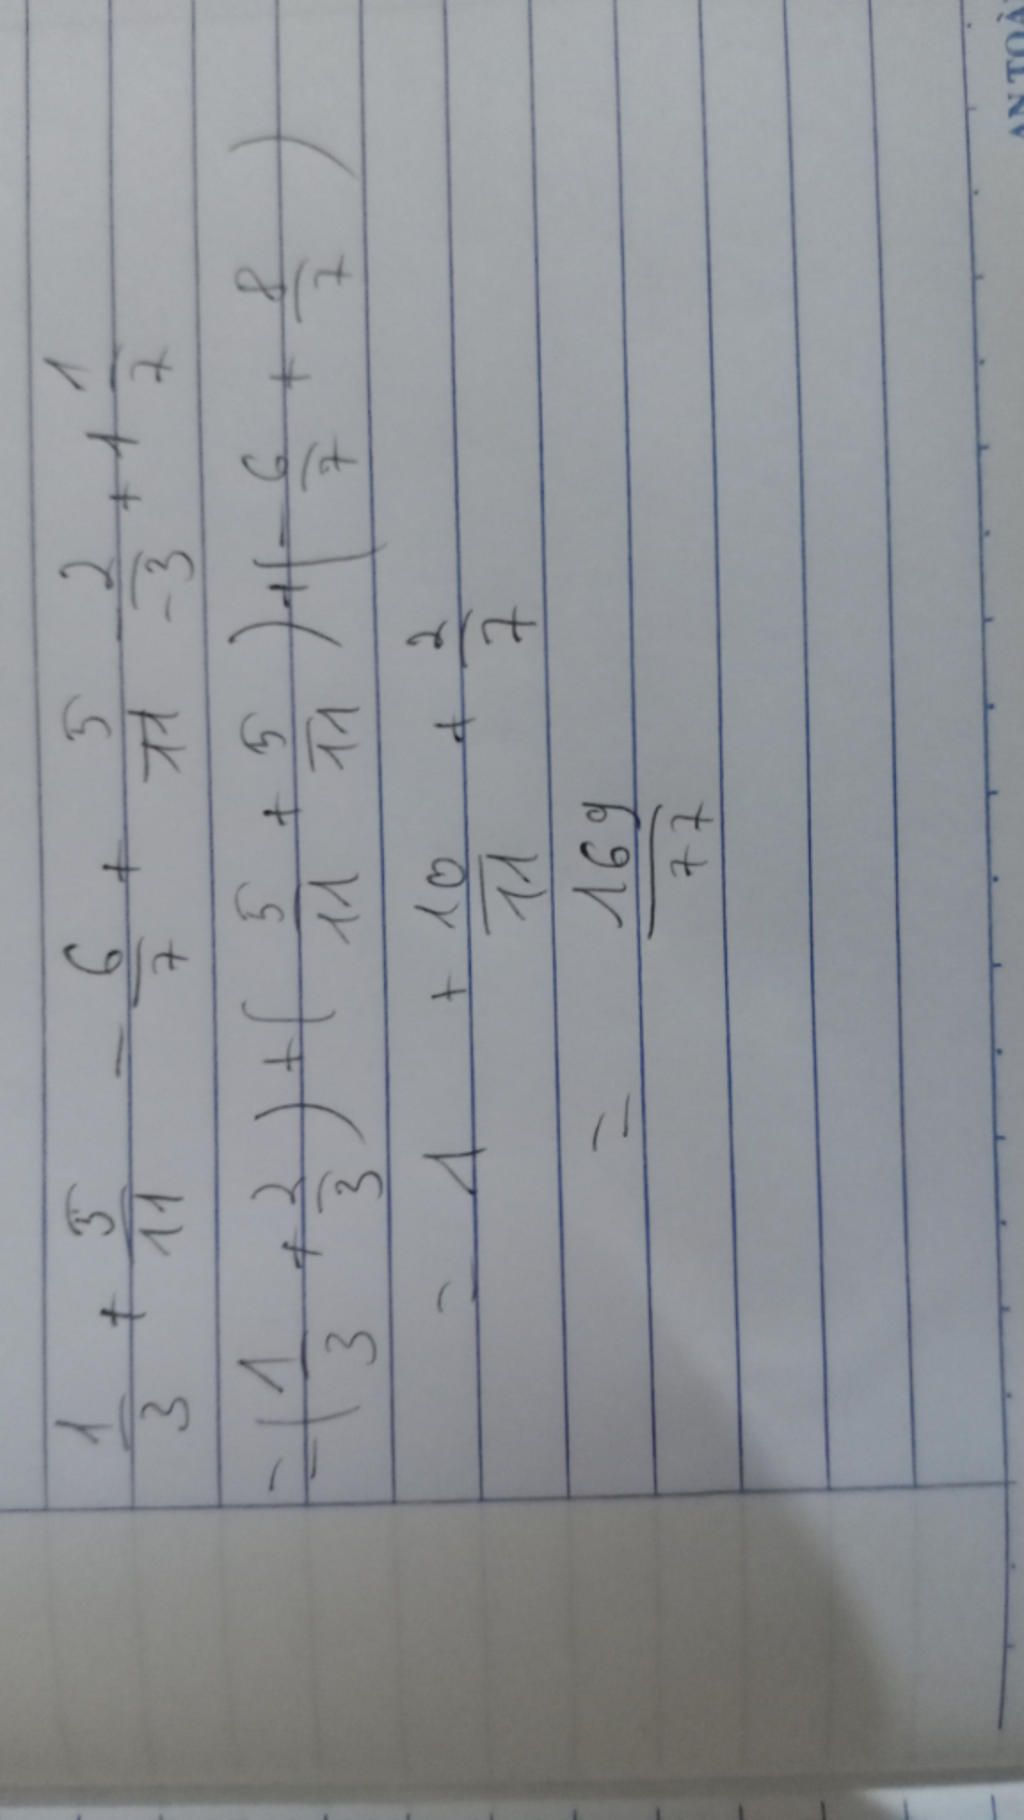 1/3 + 5/11 - 6/7 + 5/11 - 2/-3 + 1 1/7
= (1/3 + 2/3) + (5/11 + 5/11) + (-6/7 + 8/7)
= 1 + 10/11 + 2/7
= 169/77